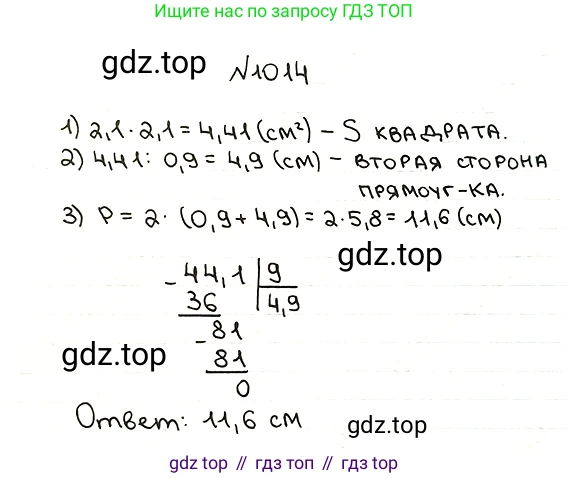 Ищите нас по запросу ГДЗ ТОП
gdz.top №1014
1) 2,1 · 2,1 = 4,41 (см²) – S КВАДРАТА.
2) 4,41 : 0,9 = 4,9 (см) – ВТОРАЯ СТОРОНА
ПРЯМОУГ-КА.
3) P = 2 · (0,9 + 4,9) = 2 · 5,8 = 11,6 (см)
gdz.top
- 44,1 | 9
36 4,9
- 81
gdz.top 81
0
Ответ: 11,6 см
gdz.top
gdz.top // гдз топ // gdz.top